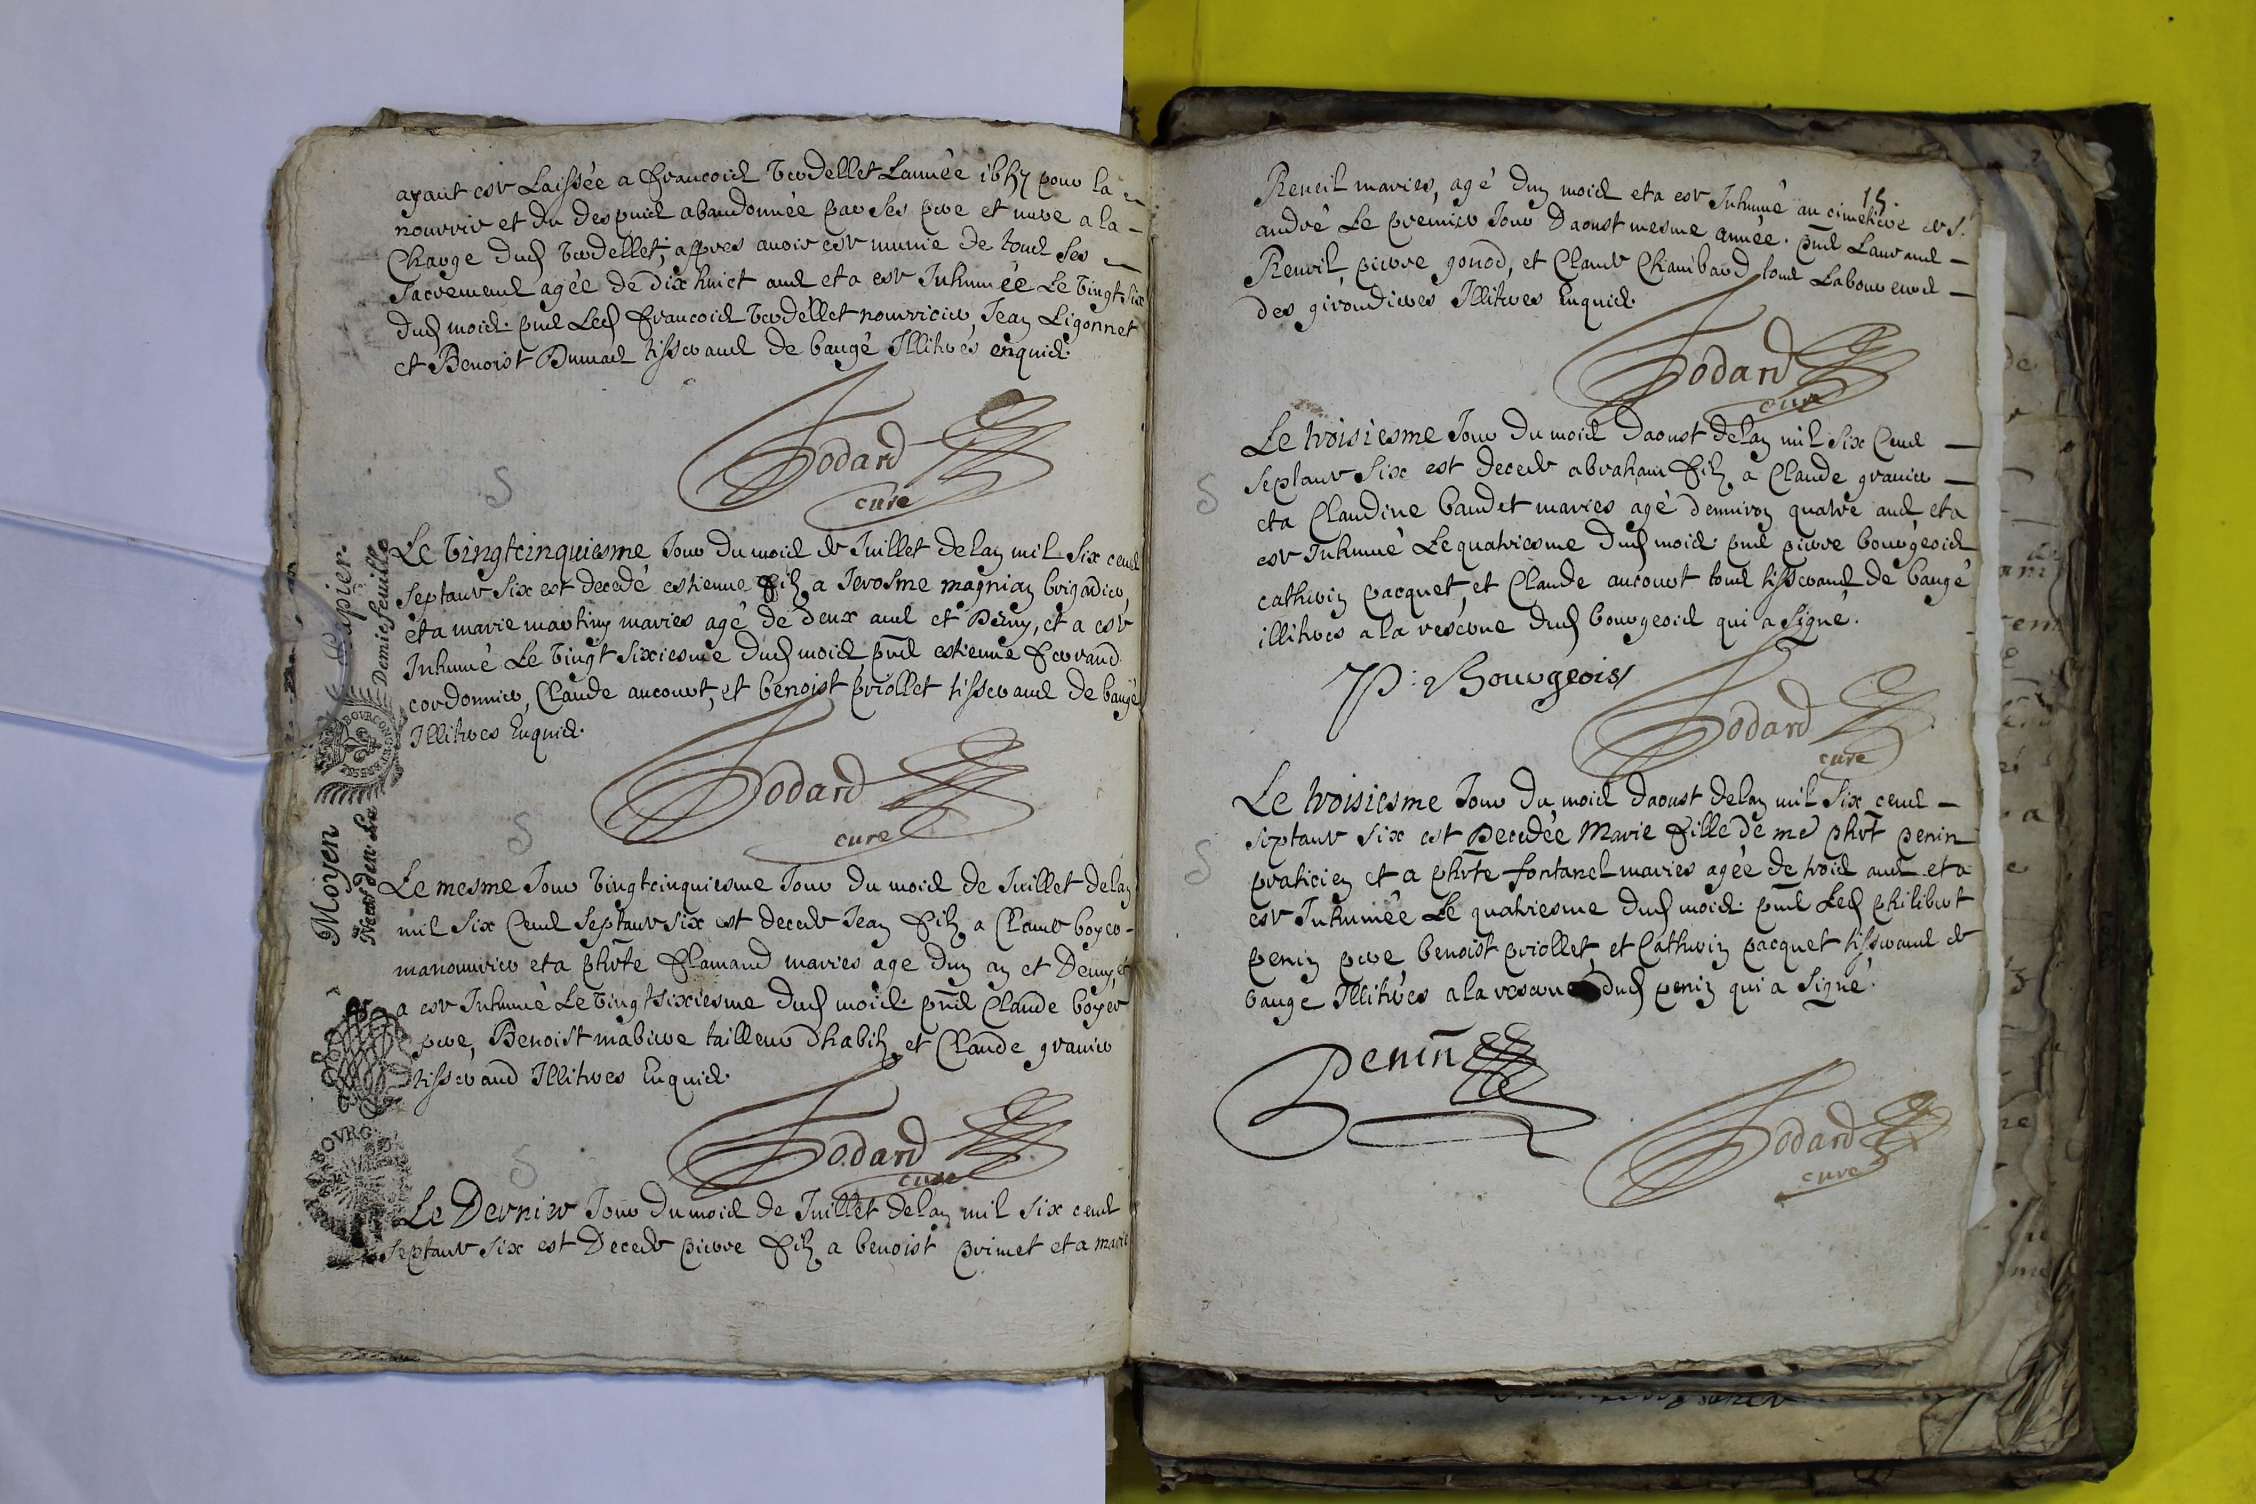 ayant esté Laissée a francois verdellet Lannée 1657 pour la
nourrir et du despuis abandonnée par ses pere et mere a la
Charge dud verdellet, appres avoir esté munie de tous ses
sacremens agée de dix huict ans et a esté Inhumée Le vingt six
dud mois. pnts Led francois verdellet nourricier, Jean Ligonnet
et Benoist Dumas tisserans de baugé Illitrés enquis.
Jodard
curé
Le vingtcinquiesme Jour du mois de Juillet de lan mil six cens
septante six est decedé estienne filz a Jerosme magnian brigadier,
et a marie martiny maries agé de deux ans et demy, et a esté
Inhumé Le vingt sixiesme dud mois pnts estienne ferrand
cordonnier, Claude aucourt, et benoist priollet tisserans de baugé
Illitres Enquis.
Jodard
curé
Le mesme Jour vingtcinquiesme Jour du mois de Juillet de lan
mil six Cens septante six est decedé Jean filz a Claude boyer
manouvrier et a phrte flamand maries age dun an et demy et
a esté Inhumé Le vingtsixiesme dud mois. pnts Claude boyer
pere, Benoist mabire tailleur dhabitz, et Claude granier
tisserand Illitres Enquis.
Jodard
curé
Le Dernier Jour du mois de Juillet de lan mil six cens
septante six est Decedé pierre filz a benoist primet et a marie
Papier
Demie feuille
BOURGOGNE BRESSE
Moyen
Neuf den. La
BOURG
15.
Reueil maries, agé dun mois et a esté Inhumé au cimetiere de St
andré Le premier Jour Daoust mesme année. pnts Laurans
Reueil, pierre gonod, et Claude Chambard tous Laboureurs
des girondieres Illitres Enquis
Jodard
curé
Le troisiesme Jour du mois Daoust de lan mil six Cens
septante six est decedé abraham filz a Claude granier
et a Claudine baudet maries agé denviron quatre ans et a
esté Inhumé Le quatriesme dud mois. pnts pierre bourgeois
catherin pacquet, et Claude aucourt tous tisserans de baugé
illitres a la reserve dud bourgeois qui a signé.
P. Bourgeois
Jodard
curé
Le troisiesme Jour du mois daoust de lan mil six cens
septante six est Decedée Marie fille de me phrt penin
praticien et a phrte fontanel maries agée de trois ans et a
esté Inhumée Le quatriesme dud mois. pnts Led philibert
penin pere benoist priollet, et Catherin pacquet tisserans de
baugé Illitrés a la reserve dud penin qui a signé.
Penin
Jodard
curé